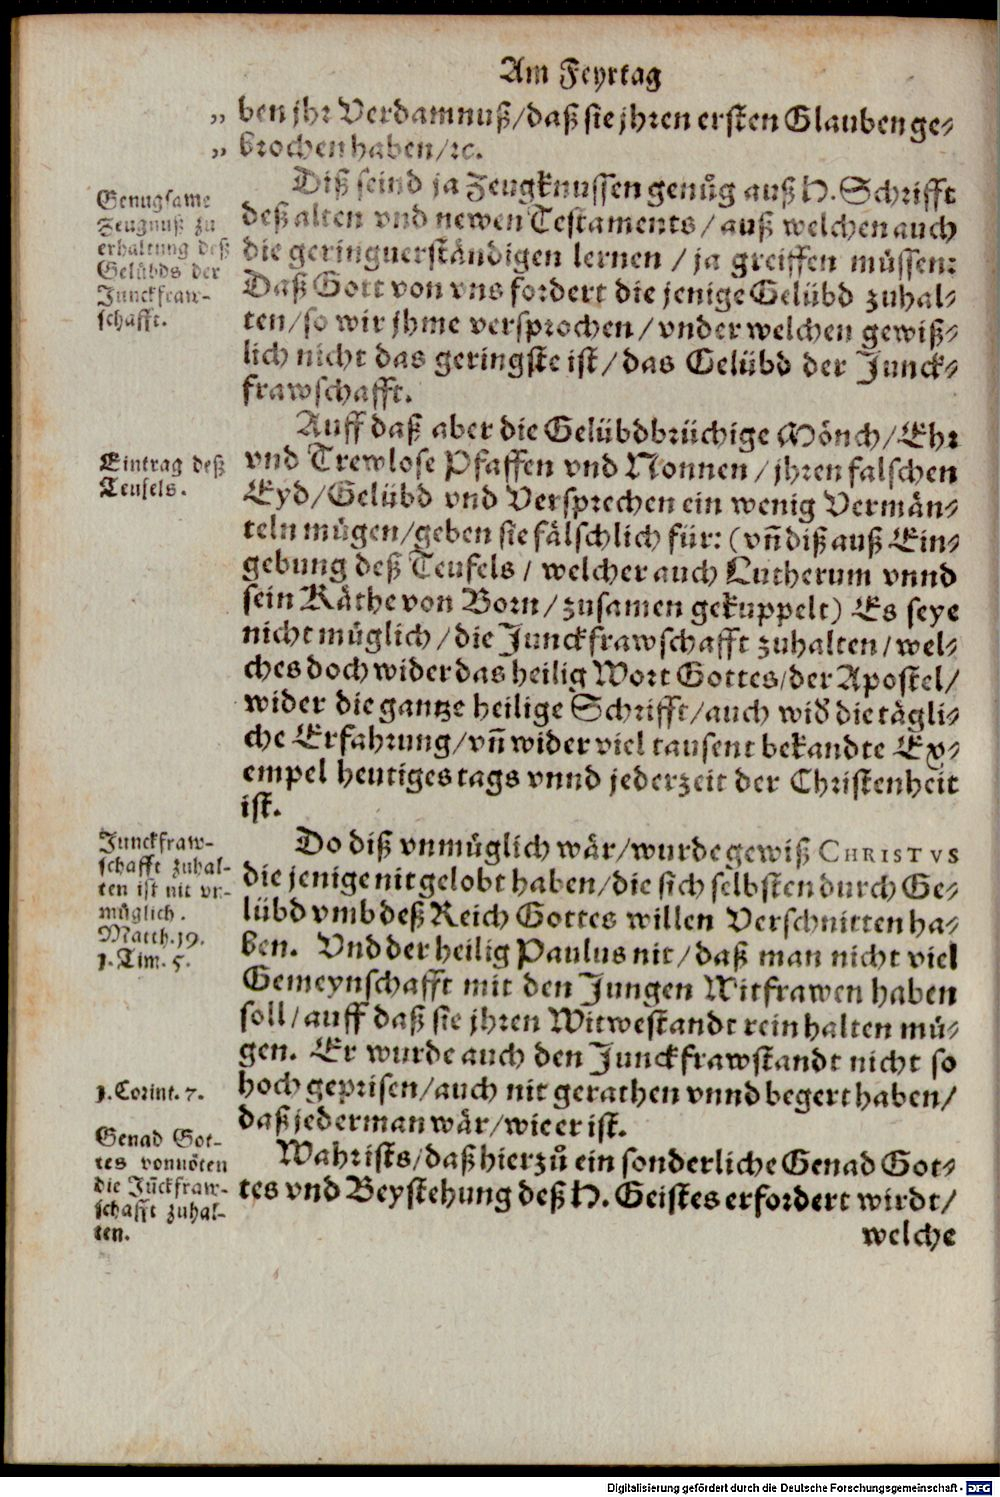 Am Feyrtag
„ ben jhr Verdamnuß/daß sie jhren ersten Glauben ge-
„ brochen haben/rc.
Diß seind ja Zeugknussen genůg auß H. Schrifft
deß alten vnd newen Testaments/auß welchen auch
die geringuerständigen lernen/ja greiffen müssen:
Daß Gott von vns fordert die jenige Gelübd zuhal-
ten/so wir jhme versprochen/vnder welchen gewiß-
lich nicht das geringste ist/das Gelübd der Junck-
frawschafft.
Genugsame
Zeugnuß zu
erhaltung deß
Gelübds der
Junckfraw-
schafft.
Auff daß aber die Gelübdbrüchige Mönch/Ehr
vnd Trewlose Pfaffen vnd Nonnen/jhren falschen
Eyd/Gelübd vnd Versprechen ein wenig Vermän-
teln mügen/geben sie fälschlich für: (vñ diß auß Ein-
gebung deß Teufels/welcher auch Lutherum vnnd
sein Käthe von Born/zusamen gekuppelt) Es seye
nicht müglich/die Junckfrawschafft zuhalten/wel-
ches doch wider das heilig Wort Gottes/der Apostel/
wider die gantze heilige Schrifft/auch wid' die tägli-
che Erfahrung/vñ wider viel tausent bekandte Ex-
empel heutiges tags vnnd jederzeit der Christenheit
ist.
Eintrag deß
Teufels.
Do diß vnmüglich wär/wurde gewiß CHRISTVS
die jenige nit gelobt haben/die sich selbsten durch Ge-
lübd vmb deß Reich Gottes willen Verschnitten ha-
ben. Vnd der heilig Paulus nit/daß man nicht viel
Gemeynschafft mit den Jungen Witfrawen haben
soll/auff daß sie jhren Witwestandt rein halten mü-
gen. Er wurde auch den Junckfrawstandt nicht so
hoch geprisen/auch nit gerathen vnnd begert haben/
daß jederman wär/wie er ist.
Junckfraw-
schafft zuhal-
ten ist nit vn-
müglich.
Matth.19.
1.Tim.5.
1.Corint.7.
Wahr ists/daß hierzů ein sonderliche Genad Got-
tes vnd Beystehung deß H. Geistes erfordert wirdt/
Genad Got-
tes vonnöten
die Jũckfraw-
schafft zuhal-
ten.
welche
Digitalisierung gefördert durch die Deutsche Forschungsgemeinschaft - DFG